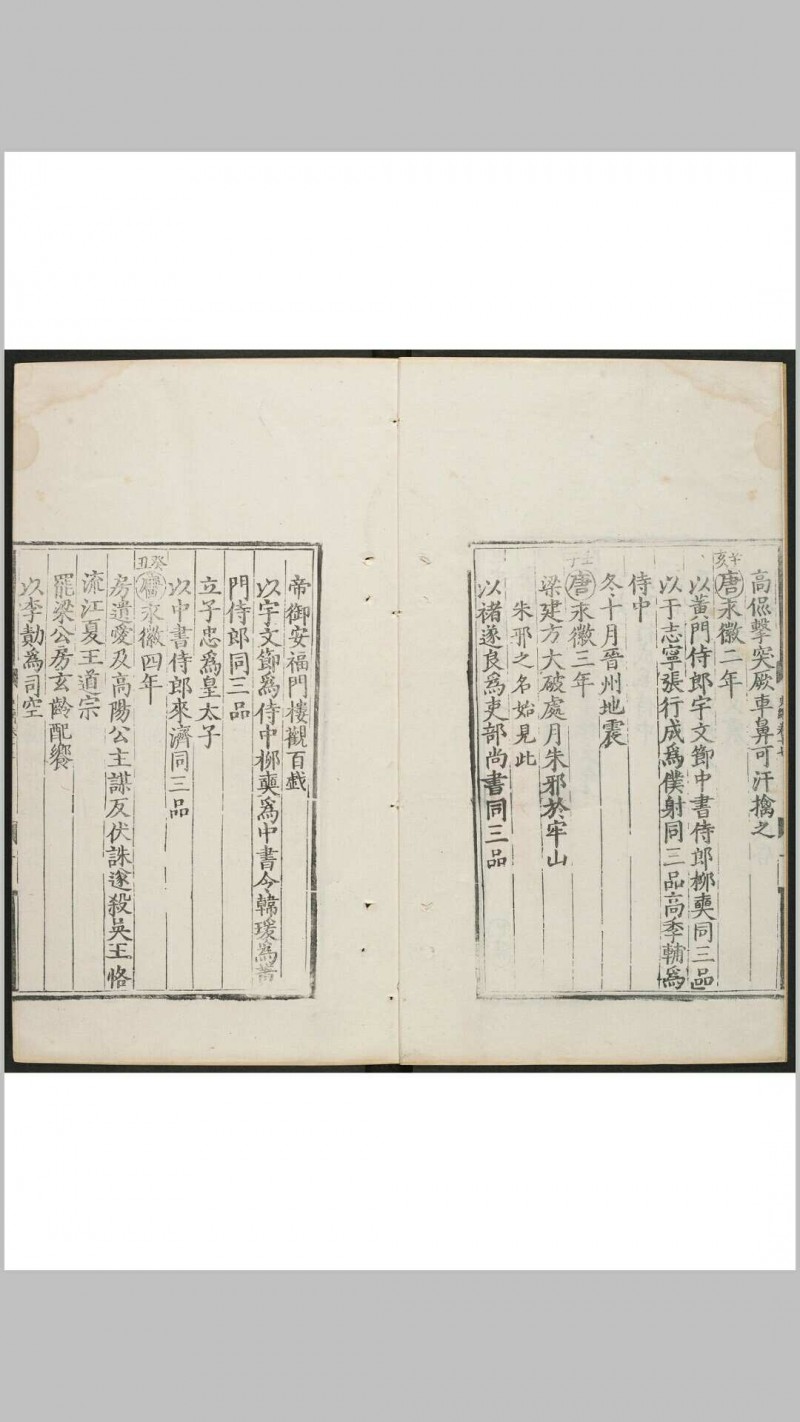 高侃擊突厥車鼻可汗擒之
辛亥
唐永徽二年
以黃門侍郎宇文節中書侍郎柳奭同三品
以于志寧張行成爲僕射同三品高季輔爲
侍中
冬十月晉州地震
壬子
唐永徽三年
梁建方大破處月朱邪於牢山
朱邪之名始見此
以褚遂良爲吏部尚書同三品
帝御安福門樓觀百戲
以宇文節爲侍中柳奭爲中書令韓瑗爲黃
門侍郎同三品
立子忠爲皇太子
以中書侍郎來濟同三品
癸丑
唐永徽四年
房遺愛及高陽公主謀反伏誅遂殺吳王恪
流江夏王道宗
罷梁公房玄齡配饗
以李勣爲司空